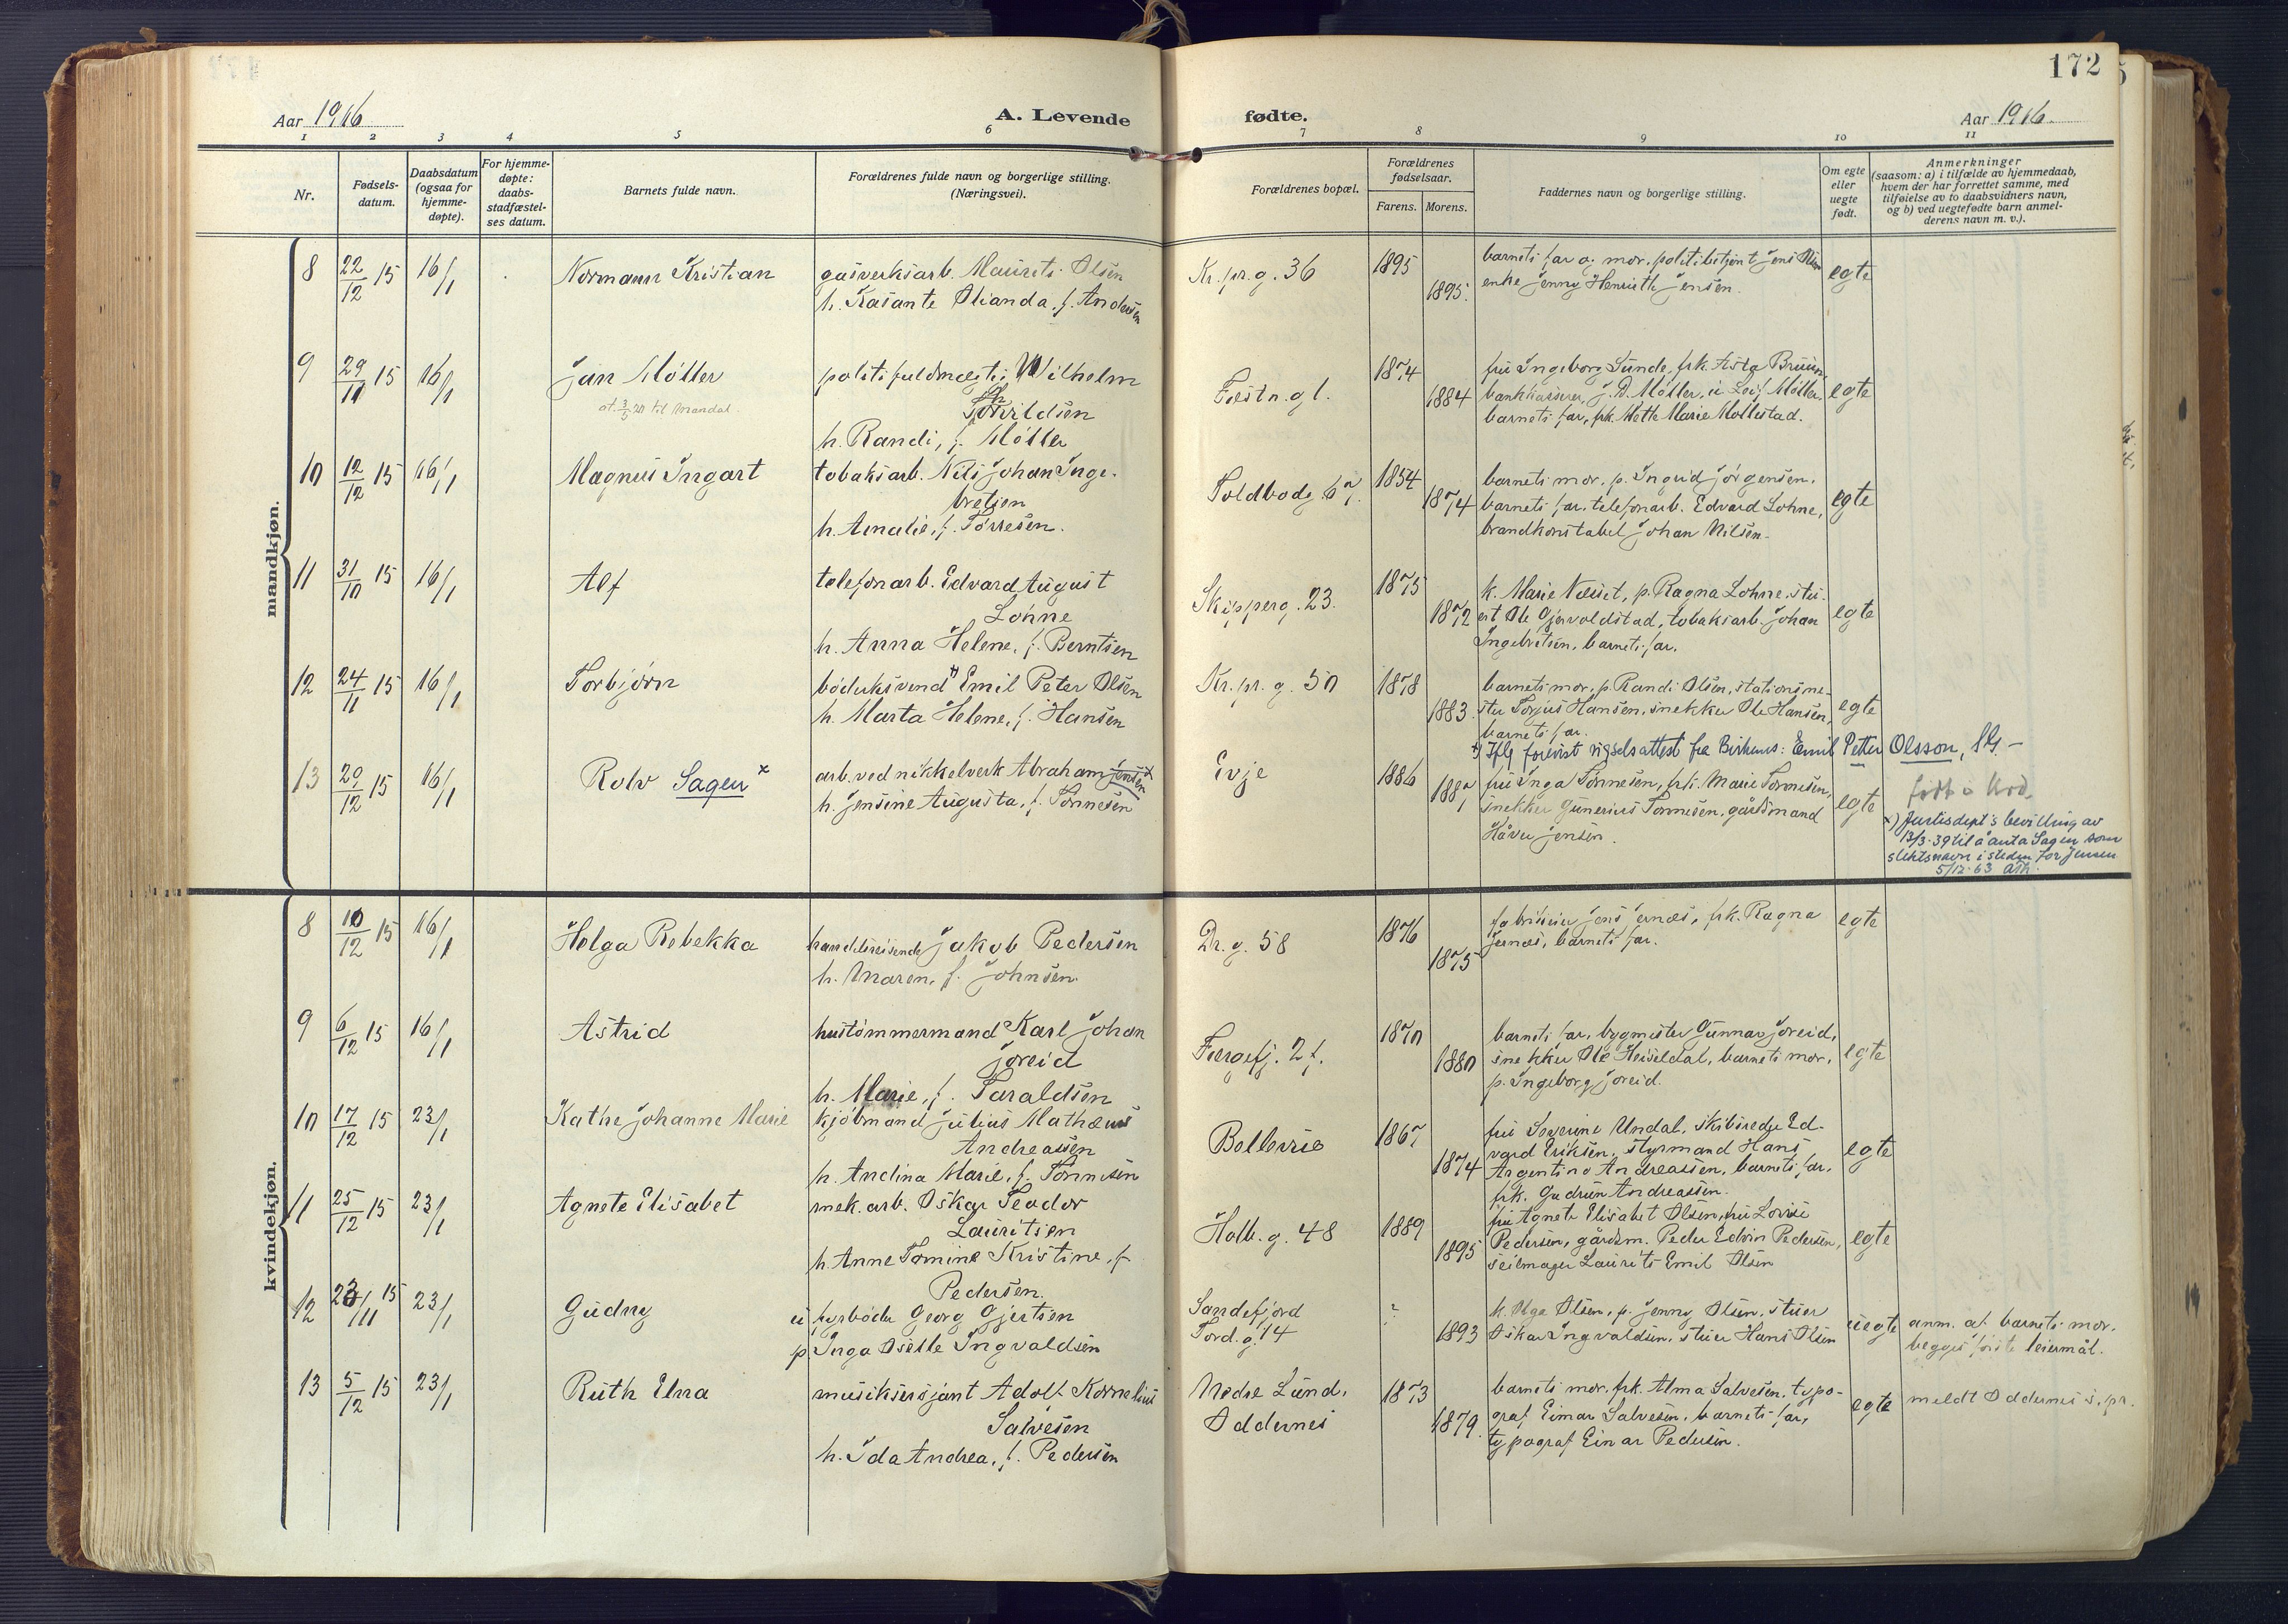 172
Aar 1916
A. Levende
fødte.
Aar 1916.
1 2 3 4 5 6 7 8 9 10 11
Nr.
Fødsels-
datum.
Daabsdatum
(ogsaa for
hjemme-
døpte).
For hjemme-
døpte:
daabs-
stadfæstel-
ses datum.
Barnets fulde navn.
Forældrenes fulde navn og borgerlige stilling.
(Næringsvei).
Forældrenes bopæl.
Forældrenes
fødselsaar.
Farens. Morens.
Faddernes navn og borgerlige stilling.
Om egte
eller
uegte
født.
Anmerkninger
(saasom: a) i tilfælde av hjemmedaab,
hvem der har forrettet samme, med
tilføielse av to daabsvidners navn,
og b) ved uegtefødte barn anmel-
derens navn m. v.).
mandkjøn.
8 22/12 15 16/1 Normann Kristian
gasverksarb. Maurits Olsen
h. Kasante Olianda, f. Andersen
Kr. pr. g. 36 1895 1895.
barnets far og mor, politibetjent Jens Olsen
enke Jenny Henriette Jensen.
egte
9 29/11 15 16/1 Jan Møller
at. 3/5 20 til Mandal.
politifuldmegtig Wilhelm
Thorvildsen
h. Randi, f. Møller
Festn. g 1. 1874 1884
fru Ingeborg Sunde, frk. Asta Bruun,
bankkasserer J. D. Møller, u Leif Møller,
barnets far, frk. Mette Marie Møllestad.
egte
10 12/12 15 16/1 Magnus Ingart
tobaksarb. Nils Johan Inge-
bretsen
h. Amalie, f. Tørresen.
Toldbodg. 67. 1854 1874
barnets mor, p. Ingrid Jørgensen,
barnets far, telefonarb. Edvard Lohne,
brandkonstabel Johan Nilsen.
egte
11 31/10 15 16/1 Alf
telefonarb. Edvard August
Lohne
h. Anna Helene, f. Berntsen
Skipperg. 23. 1875 1872
k. Marie Næset, p. Ragna Lohne, stu-
ert Ole Gjervoldstad, tobaksarb. Johan
Ingebretsen, barnets far.
egte
12 24/11 15 16/1 Torbjørn
bødkersvend Emil Peter Olsen
h. Marta Helene, f. Hansen
Kr. pr. g. 50 1878 1883.
barnets mor, p. Randi Olsen, stationsme-
ster Torjus Hansen, snekker Ole Hansen,
barnets far.
egte
Iflg forevist vigselsattest fra Birkenes: Emil Petter Olsson,
13 20/12 15 16/1 Rolv Sagen x
arb. ved nikkelverk Abraham Jensen x
h. Jensine Augusta, f. Tønnesen
Evje 1886 1887
fru Inga Tønnesen, frk. Marie Tønnesen,
snekker Gunerius Tønnesen, gårdsmand
Håver Jensen.
egte
født i Krd.
x) Justisdept's bevilling av
13/3-39 til å anta Sagen som
slektsnavn i steden for Jensen
5/12-63
kvindekjøn.
8 10/12 15 16/1 Helga Rebekka
handelsreisende Jakob Pedersen
h. Maren, f. Johnsen.
Dr. g. 58 1876 1875
fabrikeier Jens Jernæs, frk. Ragna
Jernæs, barnets far.
egte
9 6/12 15 16/1 Astrid
hustømmermand Karl Johan
Joreid
h. Marie, f. Taraldsen
Færgefj. 2 f. 1870 1880
barnets far, bygmester Gunnar Joreid,
snekker Ole Heiseldal, barnets mor,
p. Ingeborg Joreid.
egte
10 17/12 15 23/1 Kathe Johanne Marie
kjøbmand Julius Mathæus
Andreassen
h. Andina Marie, f. Tønnesen
Bellevue 1867 1874
fru Severine Undal, skibsreder Ed-
vard Eriksen, styrmand Hans
Argentino Andreassen, barnets far,
frk. Gudrun Andreassen.
egte
11 25/12 15 23/1 Agnete Elisabet
mek. arb. Oskar Teodor
Lauritsen
h. Anne Tomine Kristine, f.
Pedersen.
Holb. g. 48 1889 1895
fru Agnete Elisabet Olsen, fru Lovise
Pedersen, gårdsm. Peder Edvin Pedersen,
seilmager Laurits Emil Olsen
egte
12 23/11 15 23/1 Gudny
u fyrbøder Georg Gjertsen
p. Inga Osette Ingvaldsen
Sandefjord
Tord. g. 14
? 1893
k. Olga Olsen, p. Jenny Olsen, stuer
Oskar Ingvaldsen, stuer Hans Olsen
uegte
anm. af barnets mor.
begges første leiermål.
13 5/12 15 23/1 Ruth Elna
musiksersjant Adolf Kornelius
Salvesen
h. Ida Andrea, f. Pedersen
Nedre Lund,
Oddernes
1873 1879.
barnets mor, frk. Alma Salvesen, typo-
graf Eimar Salvesen, barnets far,
typograf Einar Pedersen.
egte
meldt Oddernes s. pr.